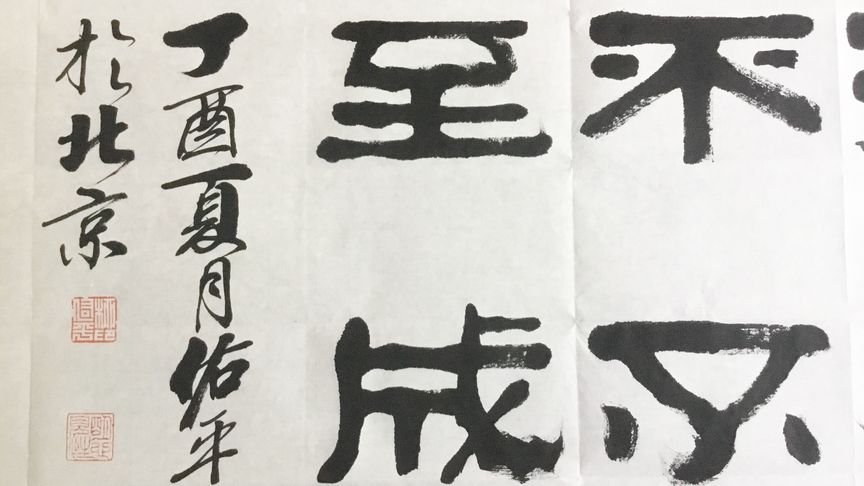 不
至成
丁酉夏月佑平
於北京